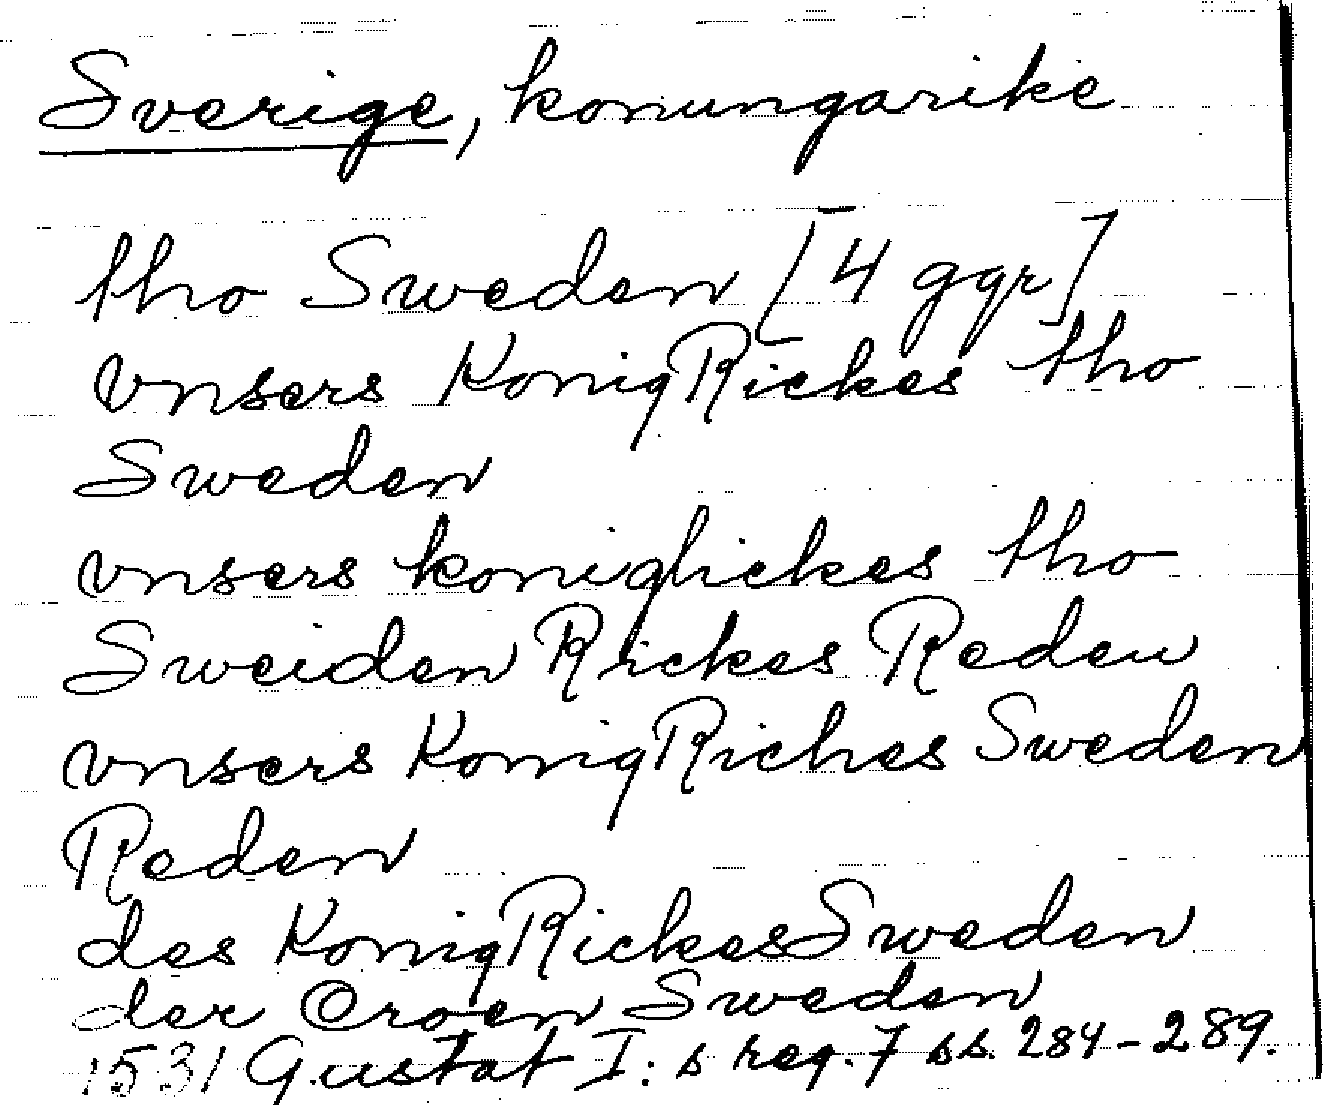 Sverige, konungarike
tho Sweden [4 ggr]
vnsers KonigRickes tho
Sweden
vnsers koniglickes tho
Sweiden Rickes Reden
vnsers KonigRiches Sweden
Reden
des KonigRickes Sweden
der Croen Sweden
1531 Gustaf I:s reg. 7 ss. 284-289.